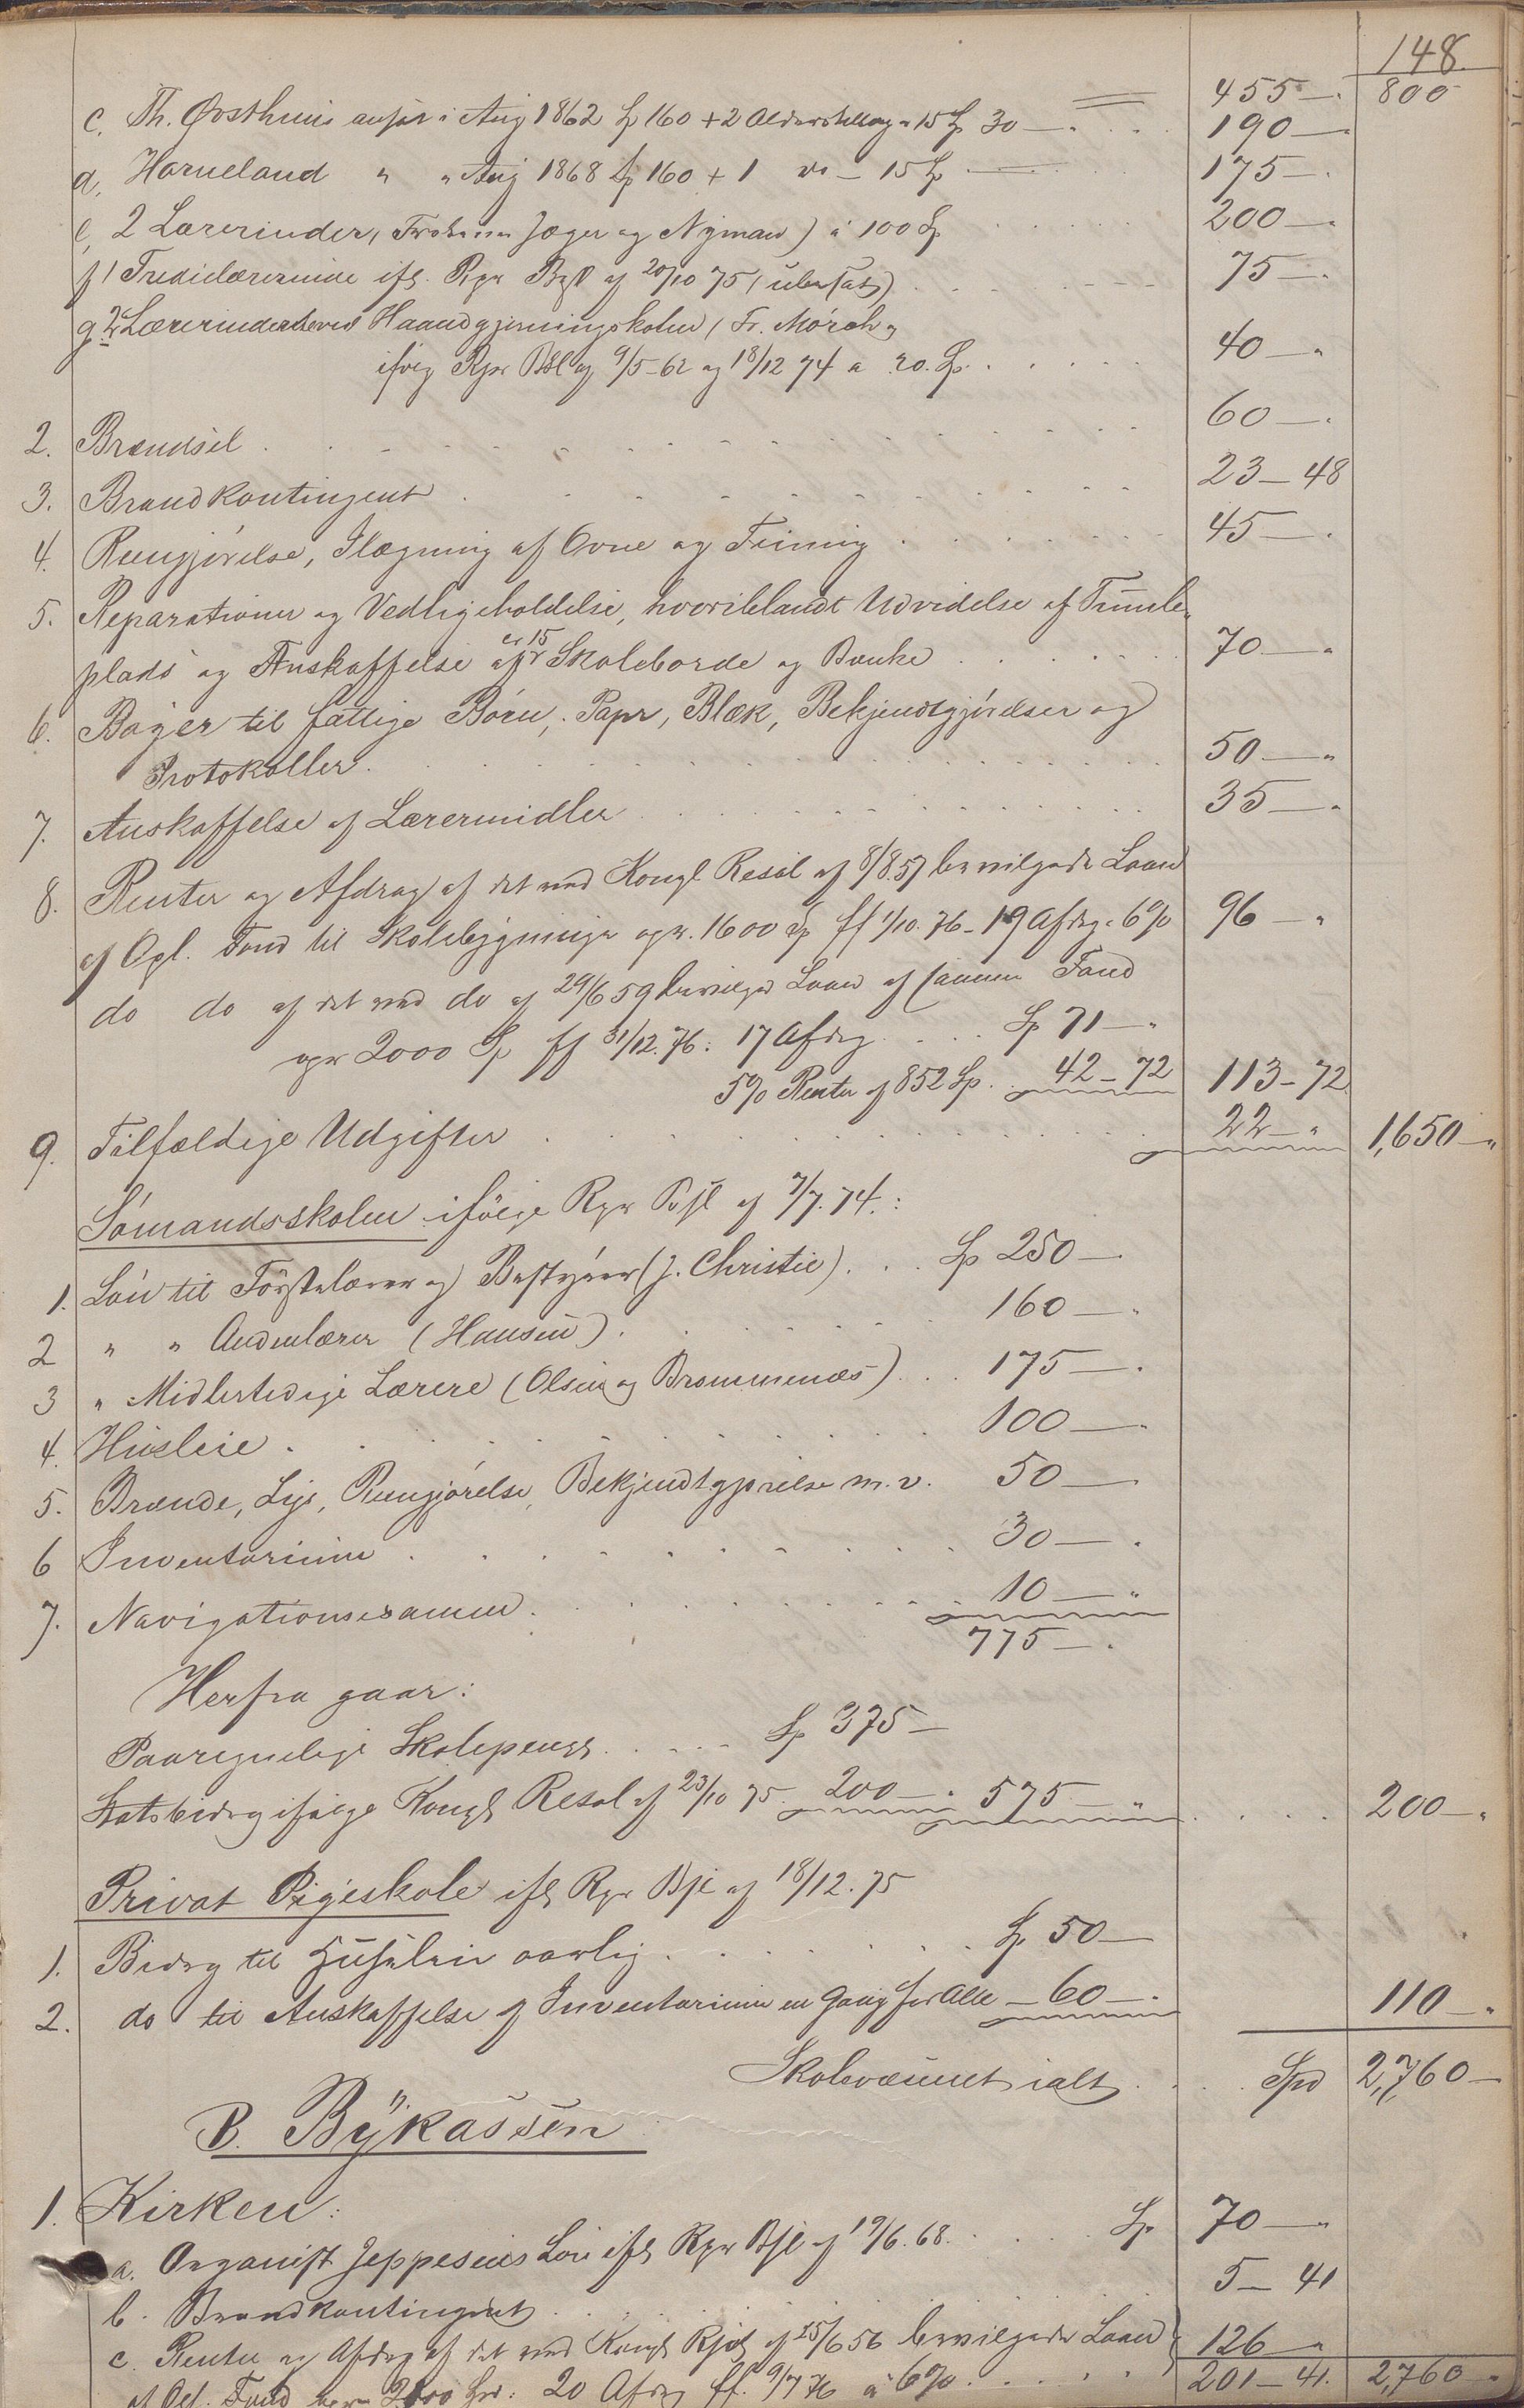 148
455 — 800
c. Th. Østhuus ansat i Aug 1862 Sp 160 + 2 Alderstillæg a 15 Sp 30 — 190 —
d. Horneland " " Aug 1868 Sp 160 + 1 do — 15 Sp 175 —
e. 2 Lærerinder, Jæger og Nyman) à 100 Sp 200 —
f 1 Tredielærerinde ifl. Rpr Bsl af 20/10 75 (ubesat) 75 —
g. 2 Lærerinder ved Haandgjerningsskolen (Fr. Mørch
ifølg Rpr Bsl af 9/5-62 og 18/12 74 a 20. Sp. 40 —
2. Brændsel 60 —
3. Brandkontingent 23 — 48
4. Rengjørelse, Ilægning af Ovne og Feining 45 —
5. Reparationer og Vedligeholdelse, hvoriblandt Udvidelse af Tumle-
plads og Anskaffelse af 15 Skoleborde og Bænke 70 —
6. Bøger til fattige Børn, Papir, Blæk, Bekjendtgjørelser og
Protokoller 50 —
7. Anskaffelse af Læremidler 35 —
8. Renter og Afdrag af det ved Kongl Resol af 8/8.57 bevilgede Laan
af Opl. Fond til Skolebygninger opr. 1600 Sp ff 1/10. 76 - 19 Afdrg. 6% 96 —
do do af det ved do af 29/6 59 bevilget Laan af samme Fond
opr 2000 Sp ff 31/12. 76. 17 Afdrg Sp 71 —
5% Renter af 852 Sp. 42 — 72 113 — 72
9. Tilfældige Udgifter 22 — 1,650 —
Sömandsskolen ifölge Rpr Bsl af 7/7. 74.:
1. Lön til Förstelærer og Bestyrer (J. Christie) Sp 250 —
2 " " Andenlærer (Hansen) 160 —
3 " Midlertidige Lærere (Olsen og Brommenæs) 175 —
4. Husleie 100 —
5. Brænde, Lys, Rengjörelse, Bekjendtgjörelse m. v. 50 —
6 Inventarium 30 —
7. Navigationsexamen 10 —
775 —
Herfra gaar:
Paaregnelige Skolepenge Sp 375 —
Statsbidrag ifølge Kongl. Resol af 23/10 75 200 — 575 — 200 —
Privat Pigeskole ifl. Rpr Bsl af 18/12. 75
1. Bidrg til Husleie aarlig Sp 50 —
2. do til Anskaffelse af Inventarium en Gang for Alle — 60 — 110 —
Skolevæsenet ialt Spd 2,760 —
B. Bykassen
1. Kirken:
a. Organist Jeppesens Lön ifl. Rpr Bsl af 19/6. 68. Sp 70 —
b. Brandkontingent 5 — 41
c. Renter og Afdrg af det ved Kongl Resol af 25/6 56 bevilgede Laan
af Opl. Fond opr. Spd. 20 Afdrg ff. 9/7 76 a 6% 126 —
201 — 41. 2,760 —